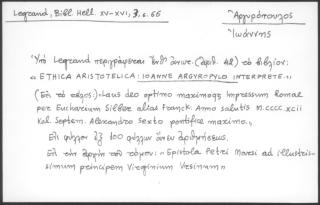 Legrand, Bibl. Hell. XV-XVI, 3, σ. 66
Ἀργυρόπουλος
Ἰωάννης
Ὑπὸ Legrand περιγράφεται (ἀριθ. 62) τὸ βιβλίον:
« ETHICA ARISTOTELICA: IOANNE ARGYROPYLO INTERPRETE.»
(Ἐν τῷ τέλος:) «Laus deo optimo maximoq; Impressum Romae
per Eucharium Silber alias Franck. Anno salutis M.CCCC XCII
Kal. Septem. Alexandro Sexto pontifice maximo.»
Ἐν φύλλοις ἐξ 100 φύλλων ἄνευ ἀριθμήσεως.
Ἐν τῇ ἀρχῇ τοῦ τόμου: « Epistola Petri Marsi ad illustris-
simum principem Virginium Vrsinum»